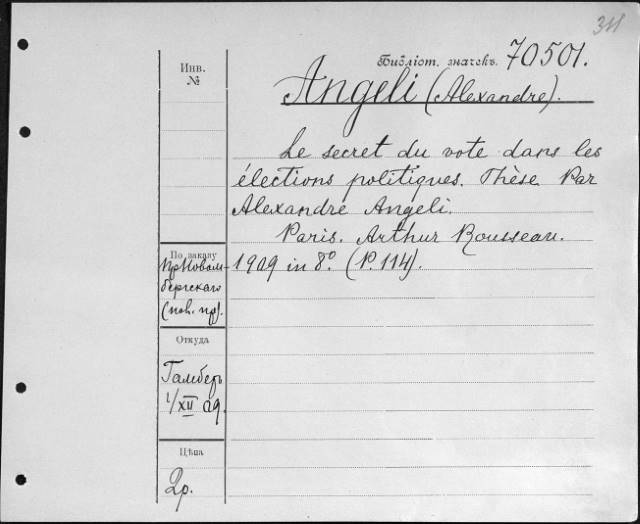 311
Библіот. значекъ 70501.
Инв.
№
Angeli (Alexandre).
Le secret du vote dans les
élections politiques. Thèse Par
Alexandre Angeli.
Paris. Arthur Rousseau.
1909 in 8º. (P. 114).
По заказу
Пр. Новом-
бергскаго
(пол. пр).
Откуда
Гамберъ
1/XII 09.
Цѣна
2р.